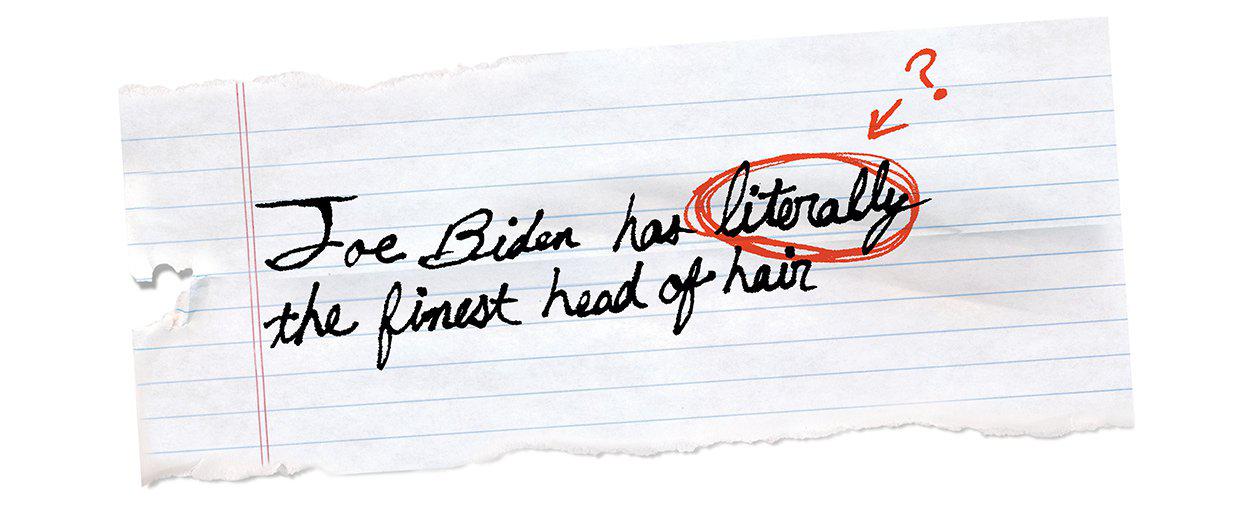 ?
Joe Biden has literally
the finest head of hair